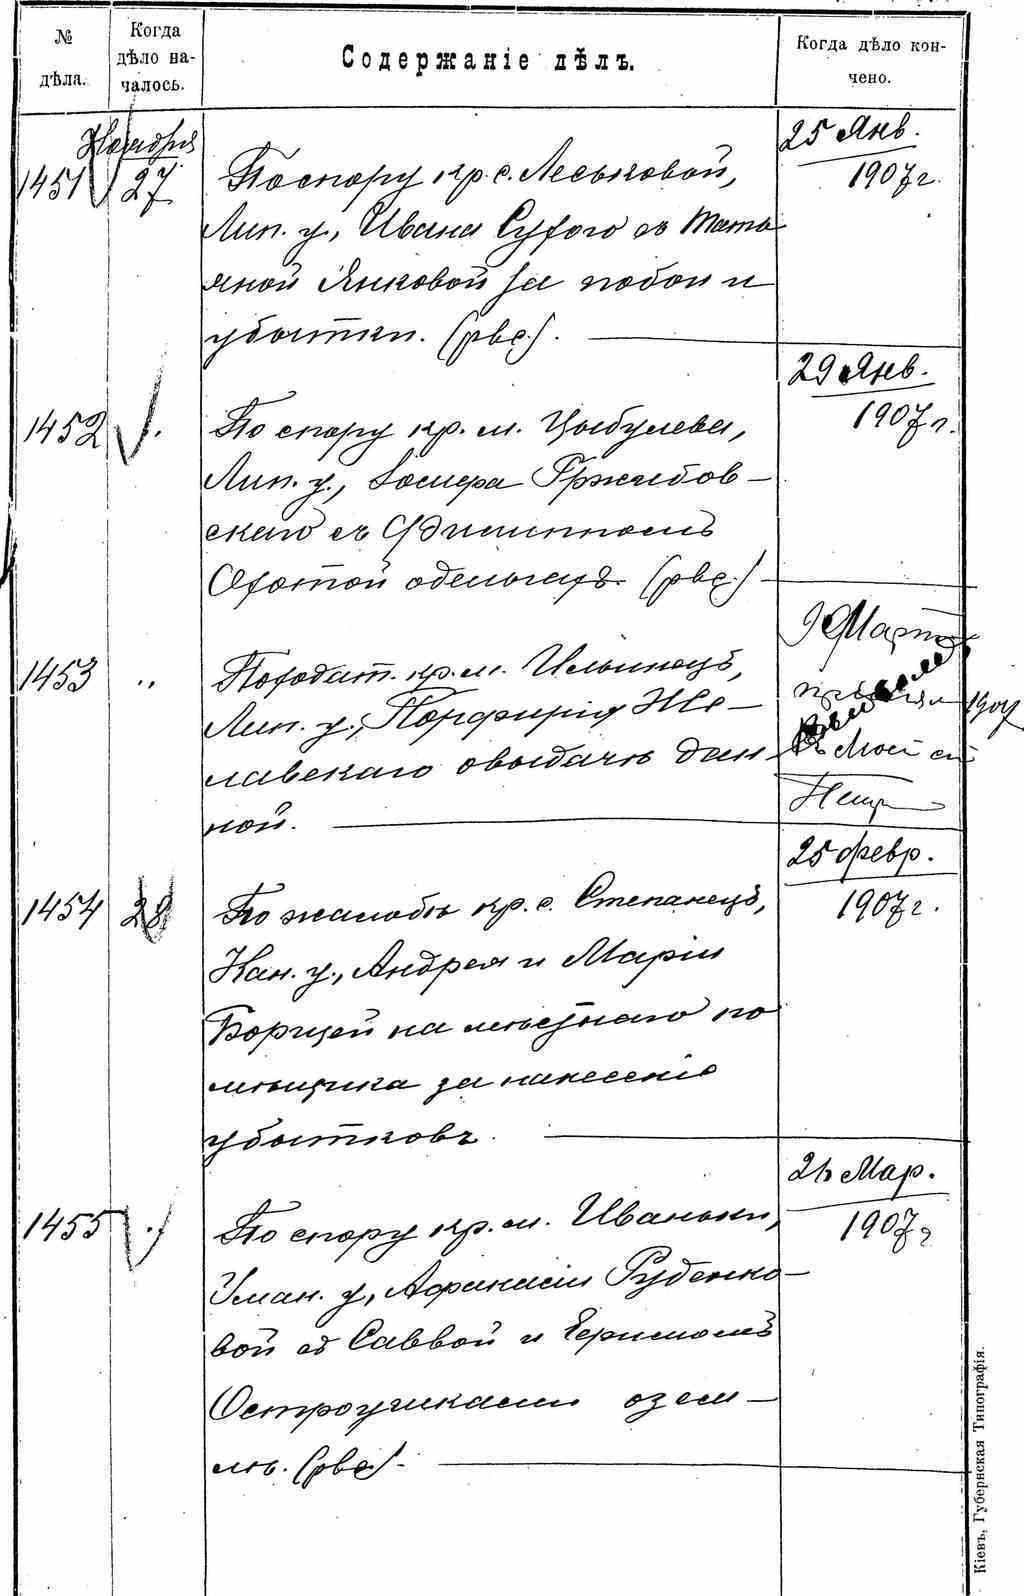 № дѣла.
Когда дѣло началось.
Содержаніе дѣлъ.
Когда дѣло кончено.
Ноября
1451
27
По спору кр. с. Леськовой,
Лип. у., Ивана Сухого съ Тать
яной Янковой за побои и
убытки. (рвс.).
25 Янв.
1907 г.
1452
По спору кр. м. Цыбулева,
Лип. у., Іосифа Гржибов-
скаго съ Филиппомъ
Охотой о деньгахъ. (рвс.)
29 Янв.
1907 г.
1453
"
По ходат. кр. м. Ильинецъ,
Лип. у., Порфирія Же-
лавскаго о выдачѣ дан-
ной.
9 Март
1907
1454
28
По жалобѣ кр. с. Степанецъ,
Кан. у., Андрея и Маріи
Борщей на мѣстнаго по
мѣщика за нанесеніе
убытковъ.
25 февр.
1907 г.
1455
По спору кр. м. Иваньки,
Уман. у., Афанасіи Руденко-
вой съ Саввой и
Остроушками о зем-
лѣ. (рвс.).
Мар.
1907 г
Кіевъ, Губернская Типографія.